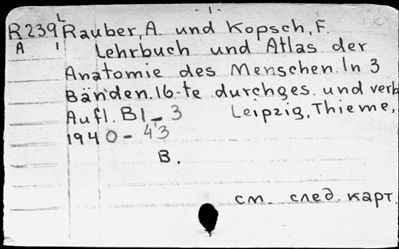 - 1 -
R239 L Rauber, A. und Kopsch, F.
A 1 Lehrbuch und Atlas der
Anatomie des Menschen. In 3
Bänden. 16-te durchges. und verb
Aufl. B1-3 Leipzig, Thieme,
1940-43
B.
см. след. карт.